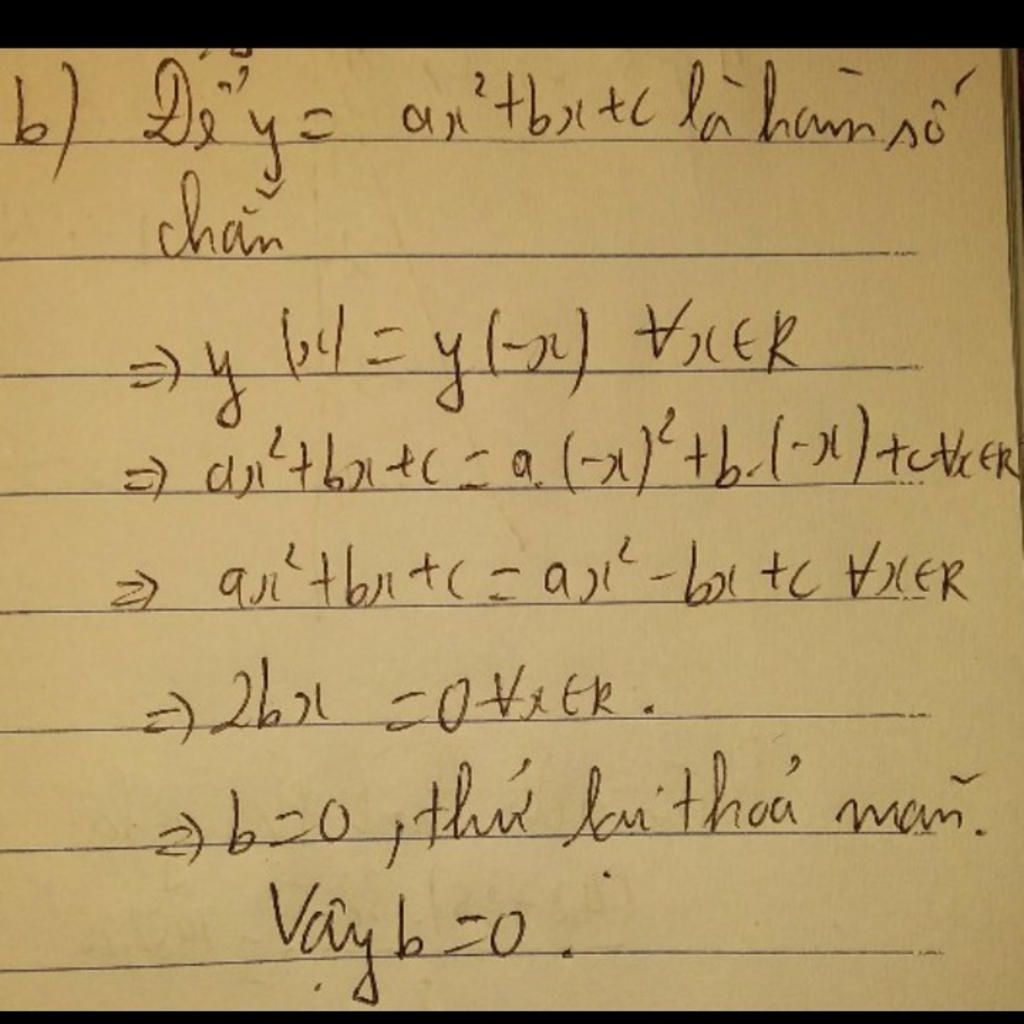 b) Để y = ax²+bx+c là hàm số
chẵn
⇒ y(x) = y(-x) ∀x∈R
⇒ ax²+bx+c = a.(-x)²+b.(-x)+c ∀x∈R
⇒ ax²+bx+c = ax²-bx+c ∀x∈R
⇒ 2bx = 0 ∀x∈R.
⇒ b=0, thử lại thoả mãn.
Vậy b=0.